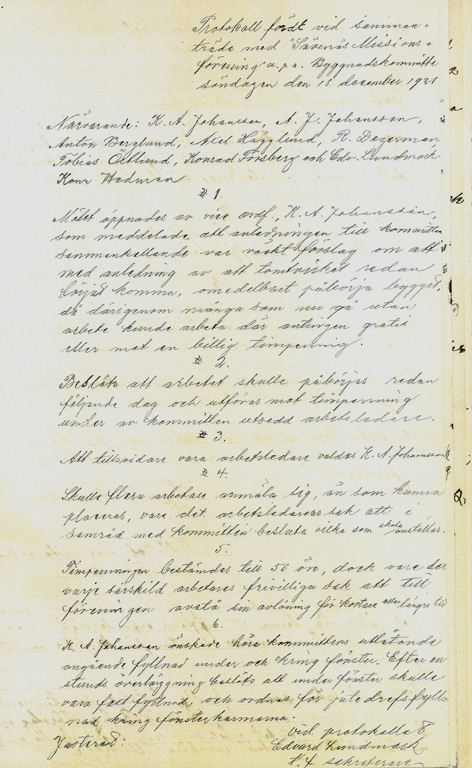 Protokoll fördt vid samman-
träde med Sävenäs Missions-
förening u.p.a. Byggnadskommitte
söndagen den 18 december 1921
Närvarande: K. A. Johansson, A. J. Johansson,
Anton Berglund, Axel Hägglund, R. Degerman
Tobias Östlund, Konrad Forsberg och Edv. Lundmark
Konr Hedman
# 1.
Mötet öppnades av vice ordf, K. A. Johansson,
som meddelade att anledningen till kommitten
sammankallande var väckt förslag om att
med anledning av att tomtvirket redan
börjat komma, omedelbart påbörja bygget,
då därigenom många som nu gå utan
arbete kunde arbeta där antingen gratis
eller mot en billig timpenning.
# 2.
Beslöts att arbetet skulle påbörjas redan
följande dag och utföras mot timpenning
under av kommitten utsedd arbetsledare.
# 3.
Att tillsvidare vara arbetsledare valdes K. A. Johansson
# 4.
Skulle flera arbetare anmäla sig, än som kunna
placeras, vare det arbetsledarens sak att i
samråd med kommitten besluta vilka som skola anställas.
5.
Timpenningen bestämdes till 50 öre, dock vare det
varje särskild arbetares frivilliga sak att till
föreningen avstå sin avlöning för kortare eller längre tid
6.
K. A. Johansson önskade höra kommittens utlåtande
angående fyllnad under och kring fönster. Efter en
stunds överläggning beslöts att under fönster skulle
vara fast fyllnad och ordnas för jutedrefsfyll-
nad kring fönsterkarmarna.
Vid protokollet
Justerat. Edvard Lundmark
t. f. sekreterare